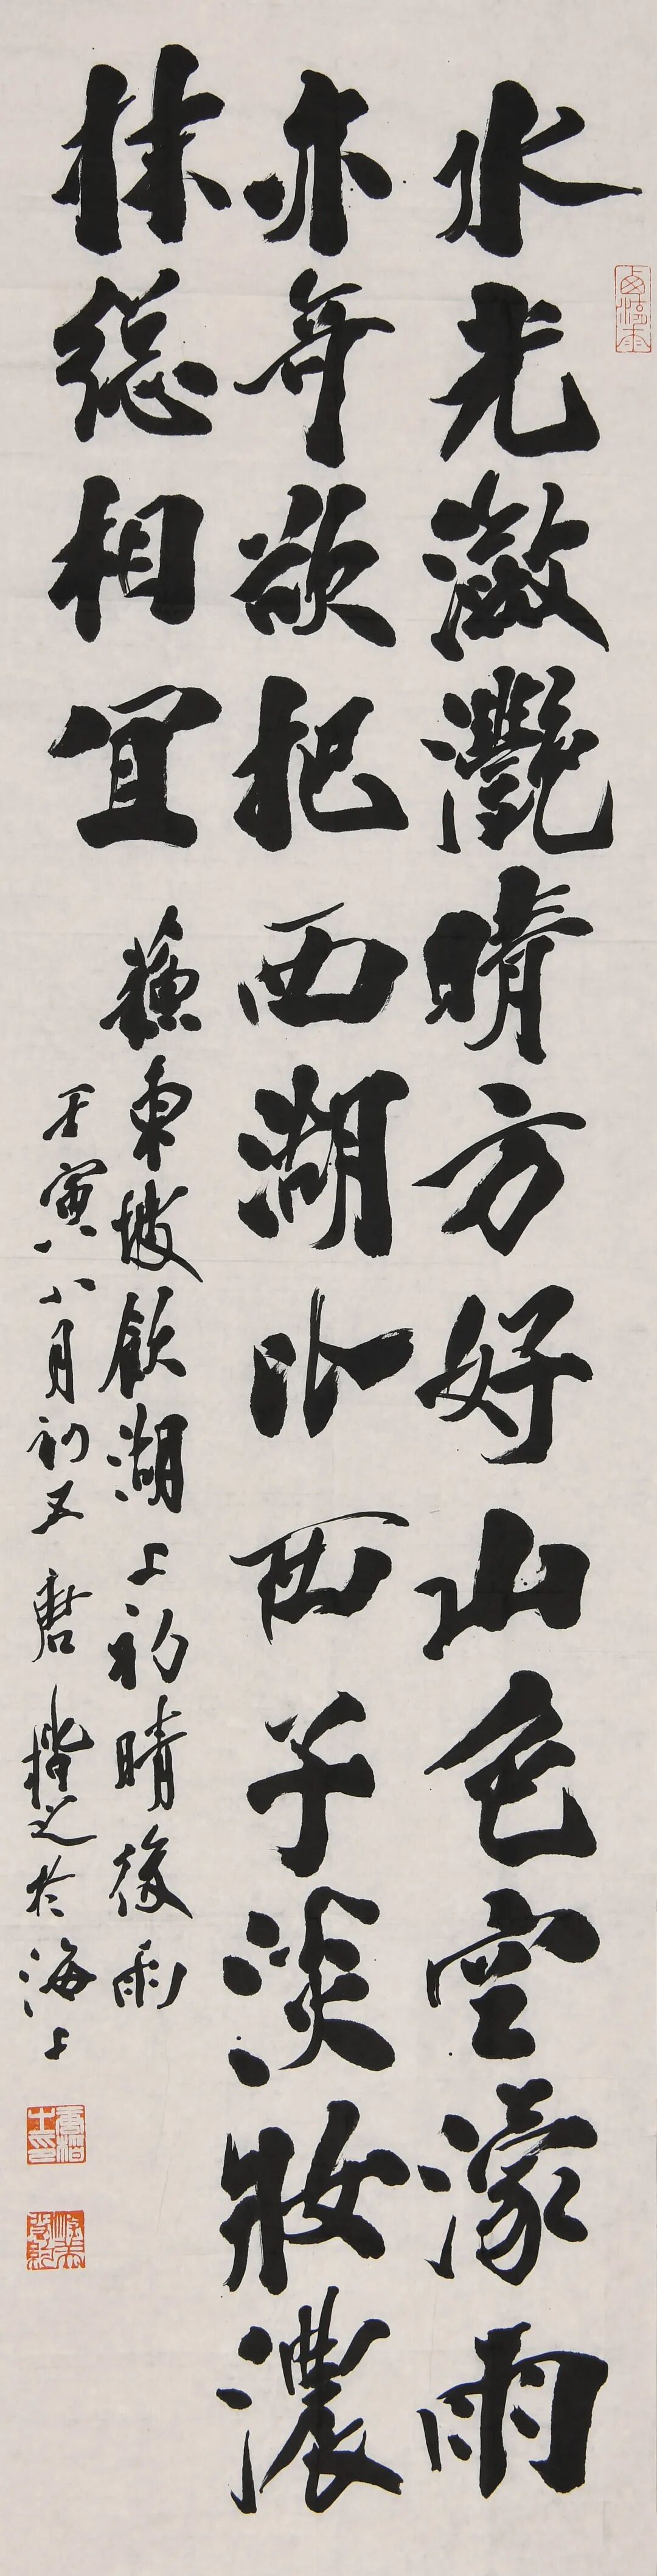 水光潋灩晴方好山色空濛雨
亦奇欲把西湖比西子淡妝濃
抹総相宜
蘇東坡飲湖上初晴後雨
壬寅八月初五唐楷之於海上